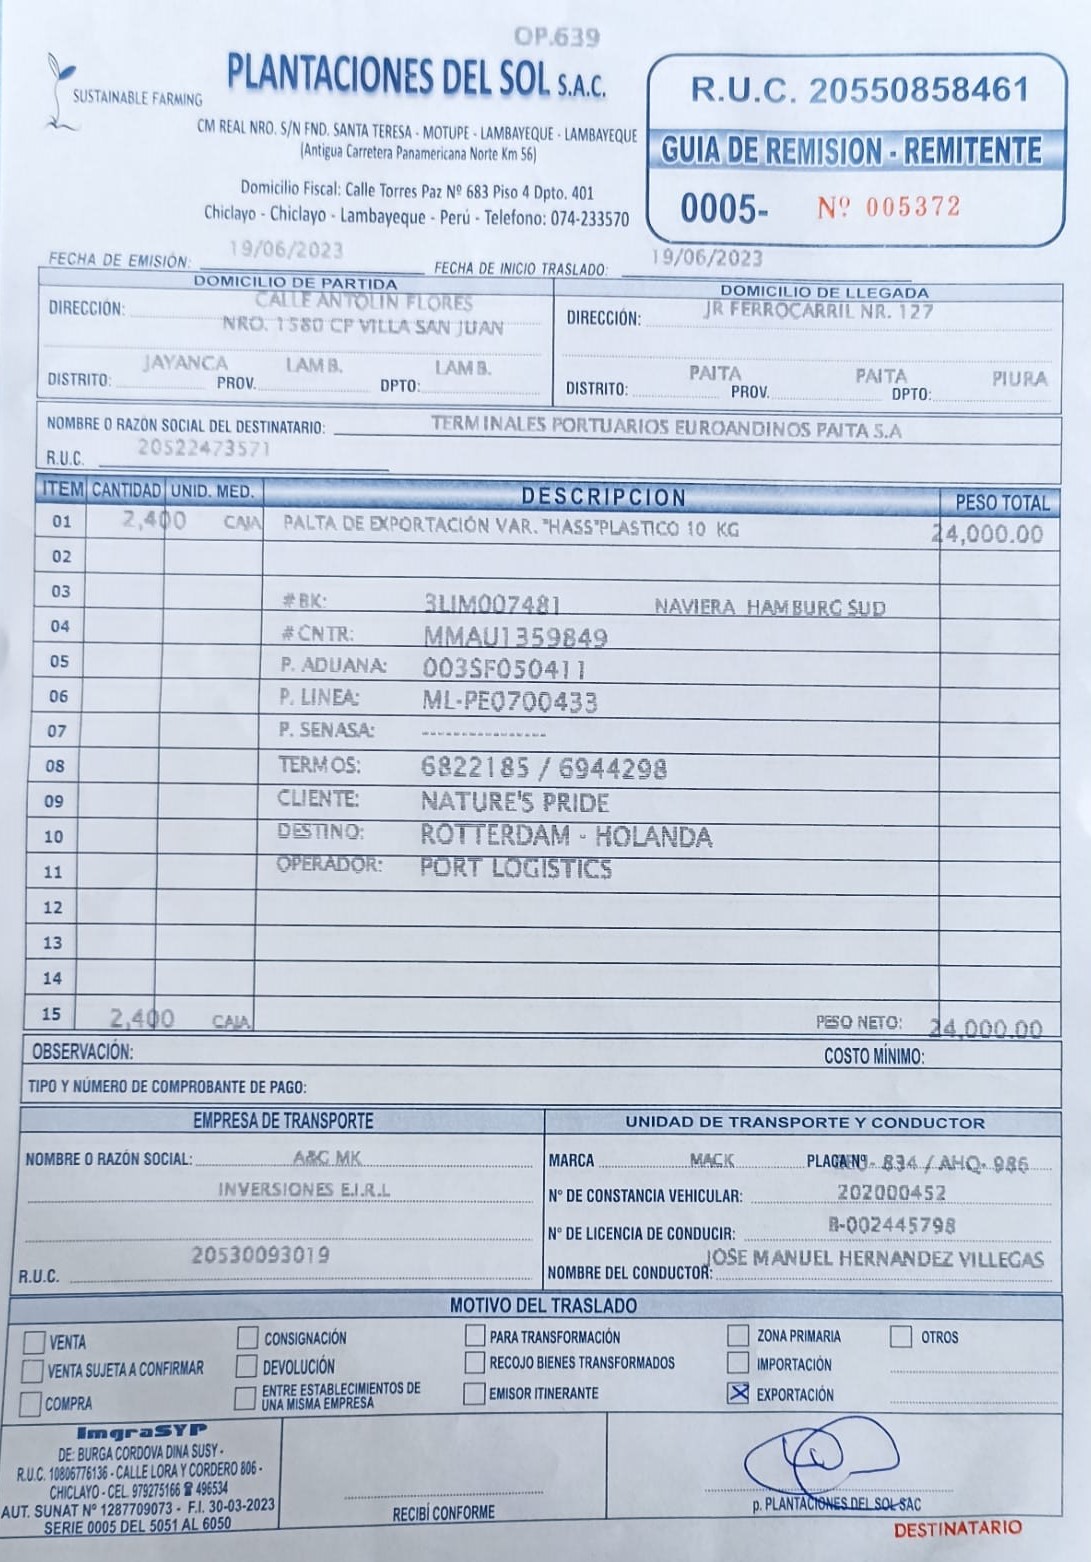 OP.639
SUSTAINABLE FARMING
PLANTACIONES DEL SOL S.A.C.
CM REAL NRO. S/N FND. SANTA TERESA - MOTUPE - LAMBAYEQUE - LAMBAYEQUE
(Antigua Carretera Panamericana Norte Km 56)
Domicilio Fiscal: Calle Torres Paz Nº 683 Piso 4 Dpto. 401
Chiclayo - Chiclayo - Lambayeque - Perú - Telefono: 074-233570
R.U.C. 20550858461
GUIA DE REMISION - REMITENTE
0005- Nº 005372
FECHA DE EMISIÓN: 19/06/2023 FECHA DE INICIO TRASLADO: 19/06/2023
DOMICILIO DE PARTIDA
DIRECCIÓN: CALLE ANTOLIN FLORES
NRO. 1580 CP VILLA SAN JUAN
DISTRITO: JAYANCA PROV. LAMB. DPTO: LAMB.
DOMICILIO DE LLEGADA
DIRECCIÓN: JR FERROCARRIL NR. 127
DISTRITO: PAITA PROV. PAITA DPTO: PIURA
NOMBRE O RAZÓN SOCIAL DEL DESTINATARIO: TERMINALES PORTUARIOS EUROANDINOS PAITA S.A
R.U.C. 20522473571
ITEM CANTIDAD UNID. MED. DESCRIPCION PESO TOTAL
01 2,400 CAJA PALTA DE EXPORTACIÓN VAR. "HASS"PLASTICO 10 KG 24,000.00
02
03 #BK: 3LIM007481 NAVIERA HAMBURG SUD
04 #CNTR: MMAU1359849
05 P. ADUANA: 003SF050411
06 P. LINEA: ML-PE0700433
07 P. SENASA: ---------------
08 TERMOS: 6822185 / 6944298
09 CLIENTE: NATURE'S PRIDE
10 DESTINO: ROTTERDAM - HOLANDA
11 OPERADOR: PORT LOGISTICS
12
13
14
15 2,400 CAJA PESO NETO: 24,000.00
OBSERVACIÓN: COSTO MÍNIMO:
TIPO Y NÚMERO DE COMPROBANTE DE PAGO:
EMPRESA DE TRANSPORTE
NOMBRE O RAZÓN SOCIAL: A&C MK
INVERSIONES E.I.R.L
R.U.C. 20530093019
UNIDAD DE TRANSPORTE Y CONDUCTOR
MARCA MACK PLACA Nº - 834 / AHQ- 986
Nº DE CONSTANCIA VEHICULAR: 202000452
Nº DE LICENCIA DE CONDUCIR: B-002445798
NOMBRE DEL CONDUCTOR: JOSE MANUEL HERNANDEZ VILLEGAS
MOTIVO DEL TRASLADO
VENTA CONSIGNACIÓN PARA TRANSFORMACIÓN ZONA PRIMARIA OTROS
VENTA SUJETA A CONFIRMAR DEVOLUCIÓN RECOJO BIENES TRANSFORMADOS IMPORTACIÓN
COMPRA ENTRE ESTABLECIMIENTOS DE UNA MISMA EMPRESA EMISOR ITINERANTE X EXPORTACIÓN
ImgraSYP
DE: BURGA CORDOVA DINA SUSY -
R.U.C. 10806776136 - CALLE LORA Y CORDERO 806 -
CHICLAYO - CEL. 979275166 ☎ 496534
AUT. SUNAT Nº 1287709073 - F.I. 30-03-2023
SERIE 0005 DEL 5051 AL 6050
RECIBÍ CONFORME
p. PLANTACIONES DEL SOL SAC
DESTINATARIO